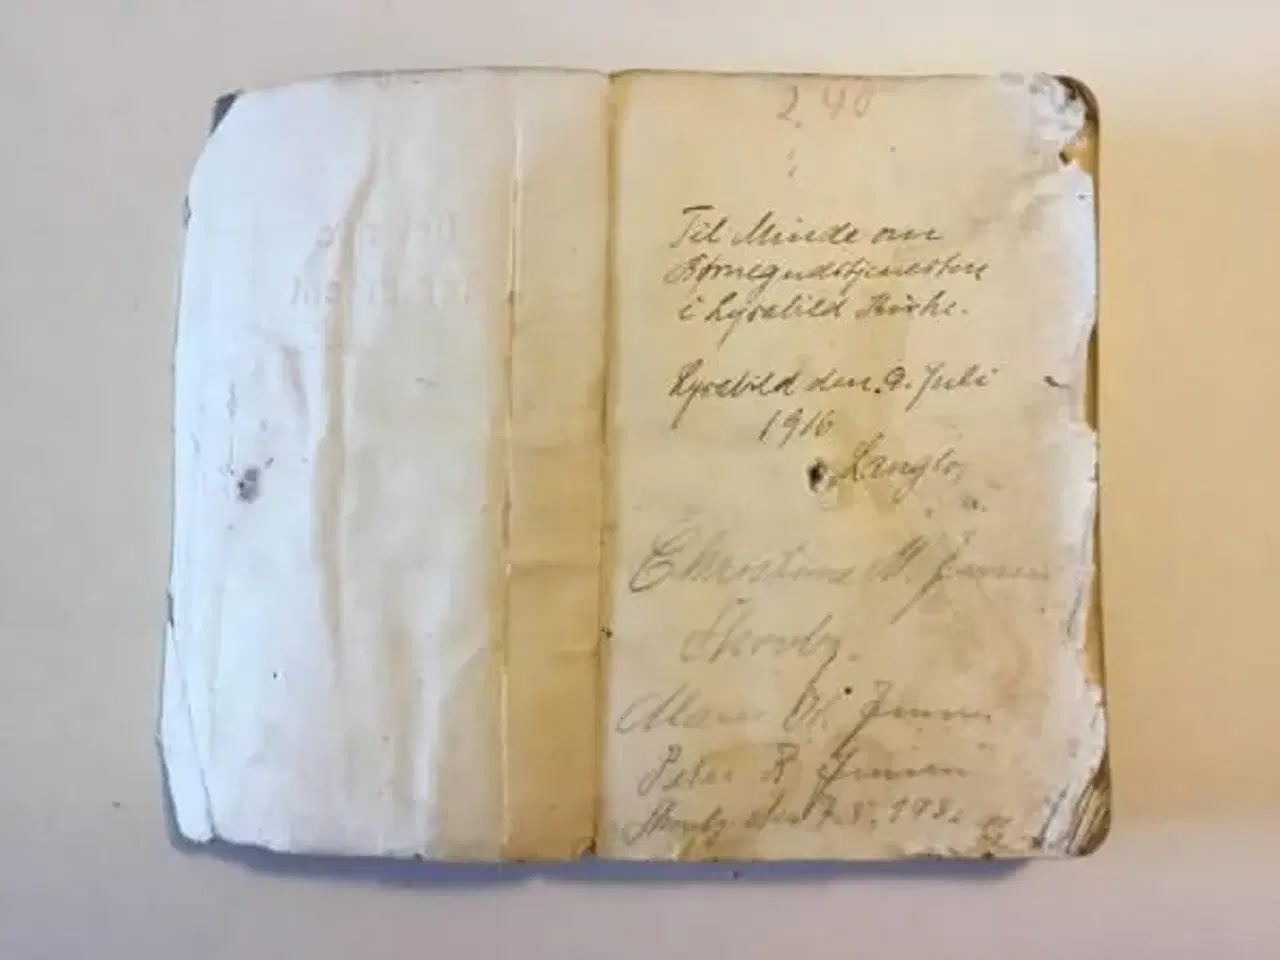 2,40
Til Minde om
Børnegudstjenesten
i Lysabild Kirke.
Lysabild den 9. Juli
1916
Christine M. Jensen
Skovby.
M. Jensen
Peter R Jensen
Skovby den 7.8, 193